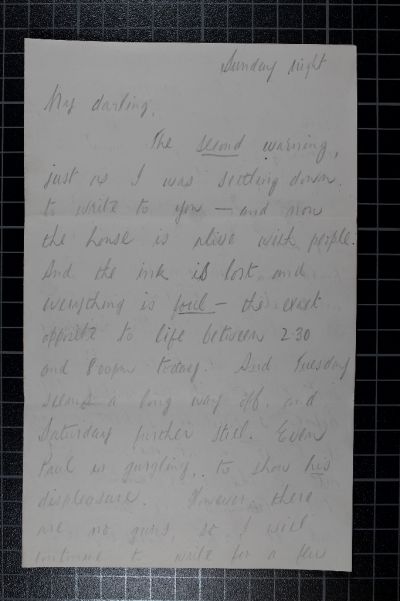 Sunday night
My darling,
The second warning,
just as I was settling down
to write to you — and now
the house is alive with people.
And the ink is lost and
everything is foul — the exact
opposite to life between 2.30
and 8 oopm today. And Tuesday
seems a long way off, and
Saturday further still. Even
Paul is gurgling, to show his
displeasure. However, there
are no guns, so I will
continue to write for a few